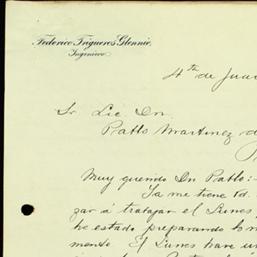 Federico Trigueros Glennie,
Ingeniero.
4th de
Sr. Lic. Dn.
Pablo Martinez d
Muy querido Dn Pablo:-
Ya me tiene Vd.
zar á trabajar el Lunes,
he estado preparando lo
mente. El Lunes